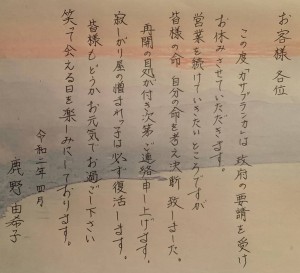 お客様 各位
この度「カサブランカ」は 政府の要請を受け
お休みさせていただきます。
営業を続けていきたいところですが
皆様の命、自分の命を考え決断 致しました。
再開の目処が付き次第 ご連絡申し上げます。
寂しがり屋の憎まれっ子は 必ず復活します。
皆様も どうか お元気で お過ごし下さい
笑って会える日を楽しみにしております。
令和二年 四月
鹿野由希子